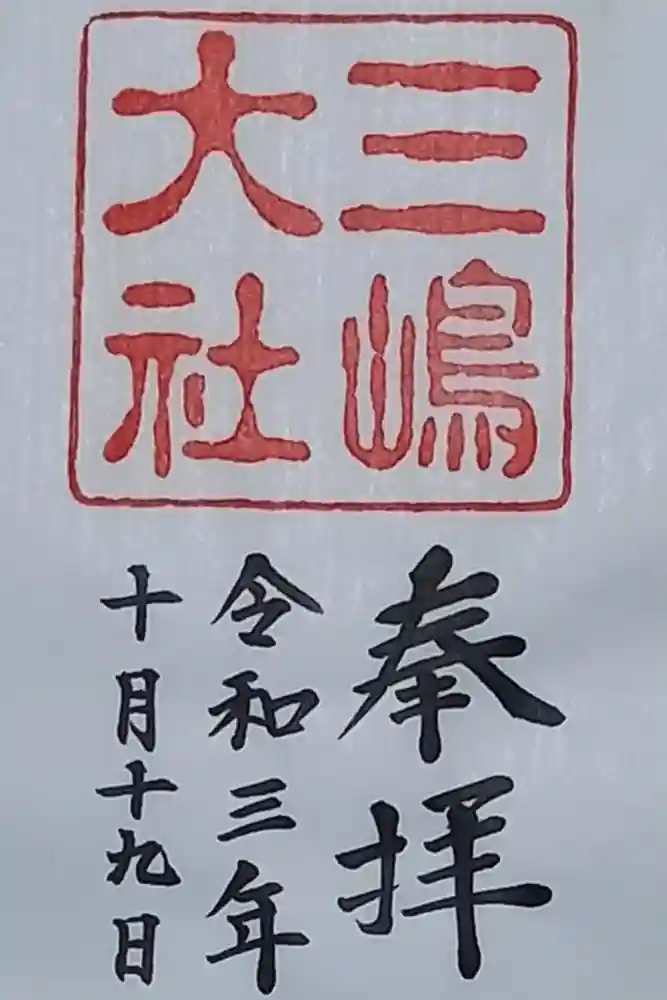 三嶋
大社
奉拝
令和三年
十月十九日